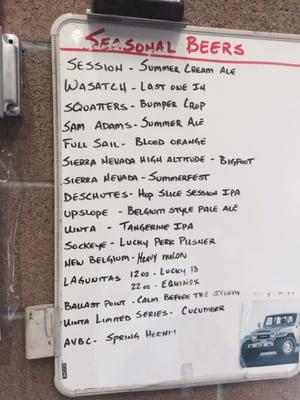 SEASONAL BEERS
SESSION - SUMMER CREAM ALE
WASATCH - LAST ONE IN
SQUATTERS - BUMPER CROP
SAM ADAMS - SUMMER ALE
FULL SAIL - BLOOD ORANGE
SIERRA NEVADA HIGH ALTITUDE - BIGFOOT
SIERRA NEVADA - SUMMERFEST
DESCHUTES - HOP SLICE SESSION IPA
UPSLOPE - BELGIUM STYLE PALE ALE
UINTA - TANGERINE IPA
SOCKEYE - LUCKY PERK PILSNER
NEW BELGIUM - HEAVY MELON
LAGUNITAS 12oz - LUCKY 13
22oz - EQUINOX
BALLAST POINT - CALM BEFORE THE STORM
UINTA LIMITED SERIES - CUCUMBER
AVBC - SPRING